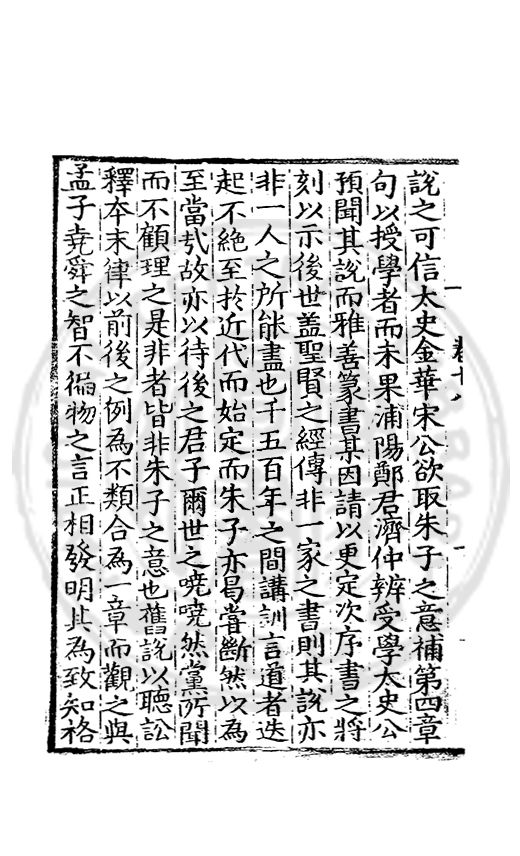 說之可信太史金華宋公欲取朱子之意補第四章
句以授學者而未果浦陽鄭君濟仲辨受學太史公
預聞其說而雅善篆書某因請以更定次序書之將
刻以示後世盖聖賢之經傳非一家之書則其說亦
非一人之所能盡也千五百年之間講訓言道者迭
起不絕至於近代而始定而朱子亦曷嘗斷然以為
至當㢤故亦以待後之君子爾世之嘵嘵然黨所聞
而不顧理之是非者皆非朱子之意也舊說以聽訟
釋本末律以前後之例為不類合為一章而觀之與
孟子堯舜之智不徧物之言正相發明其為致知格